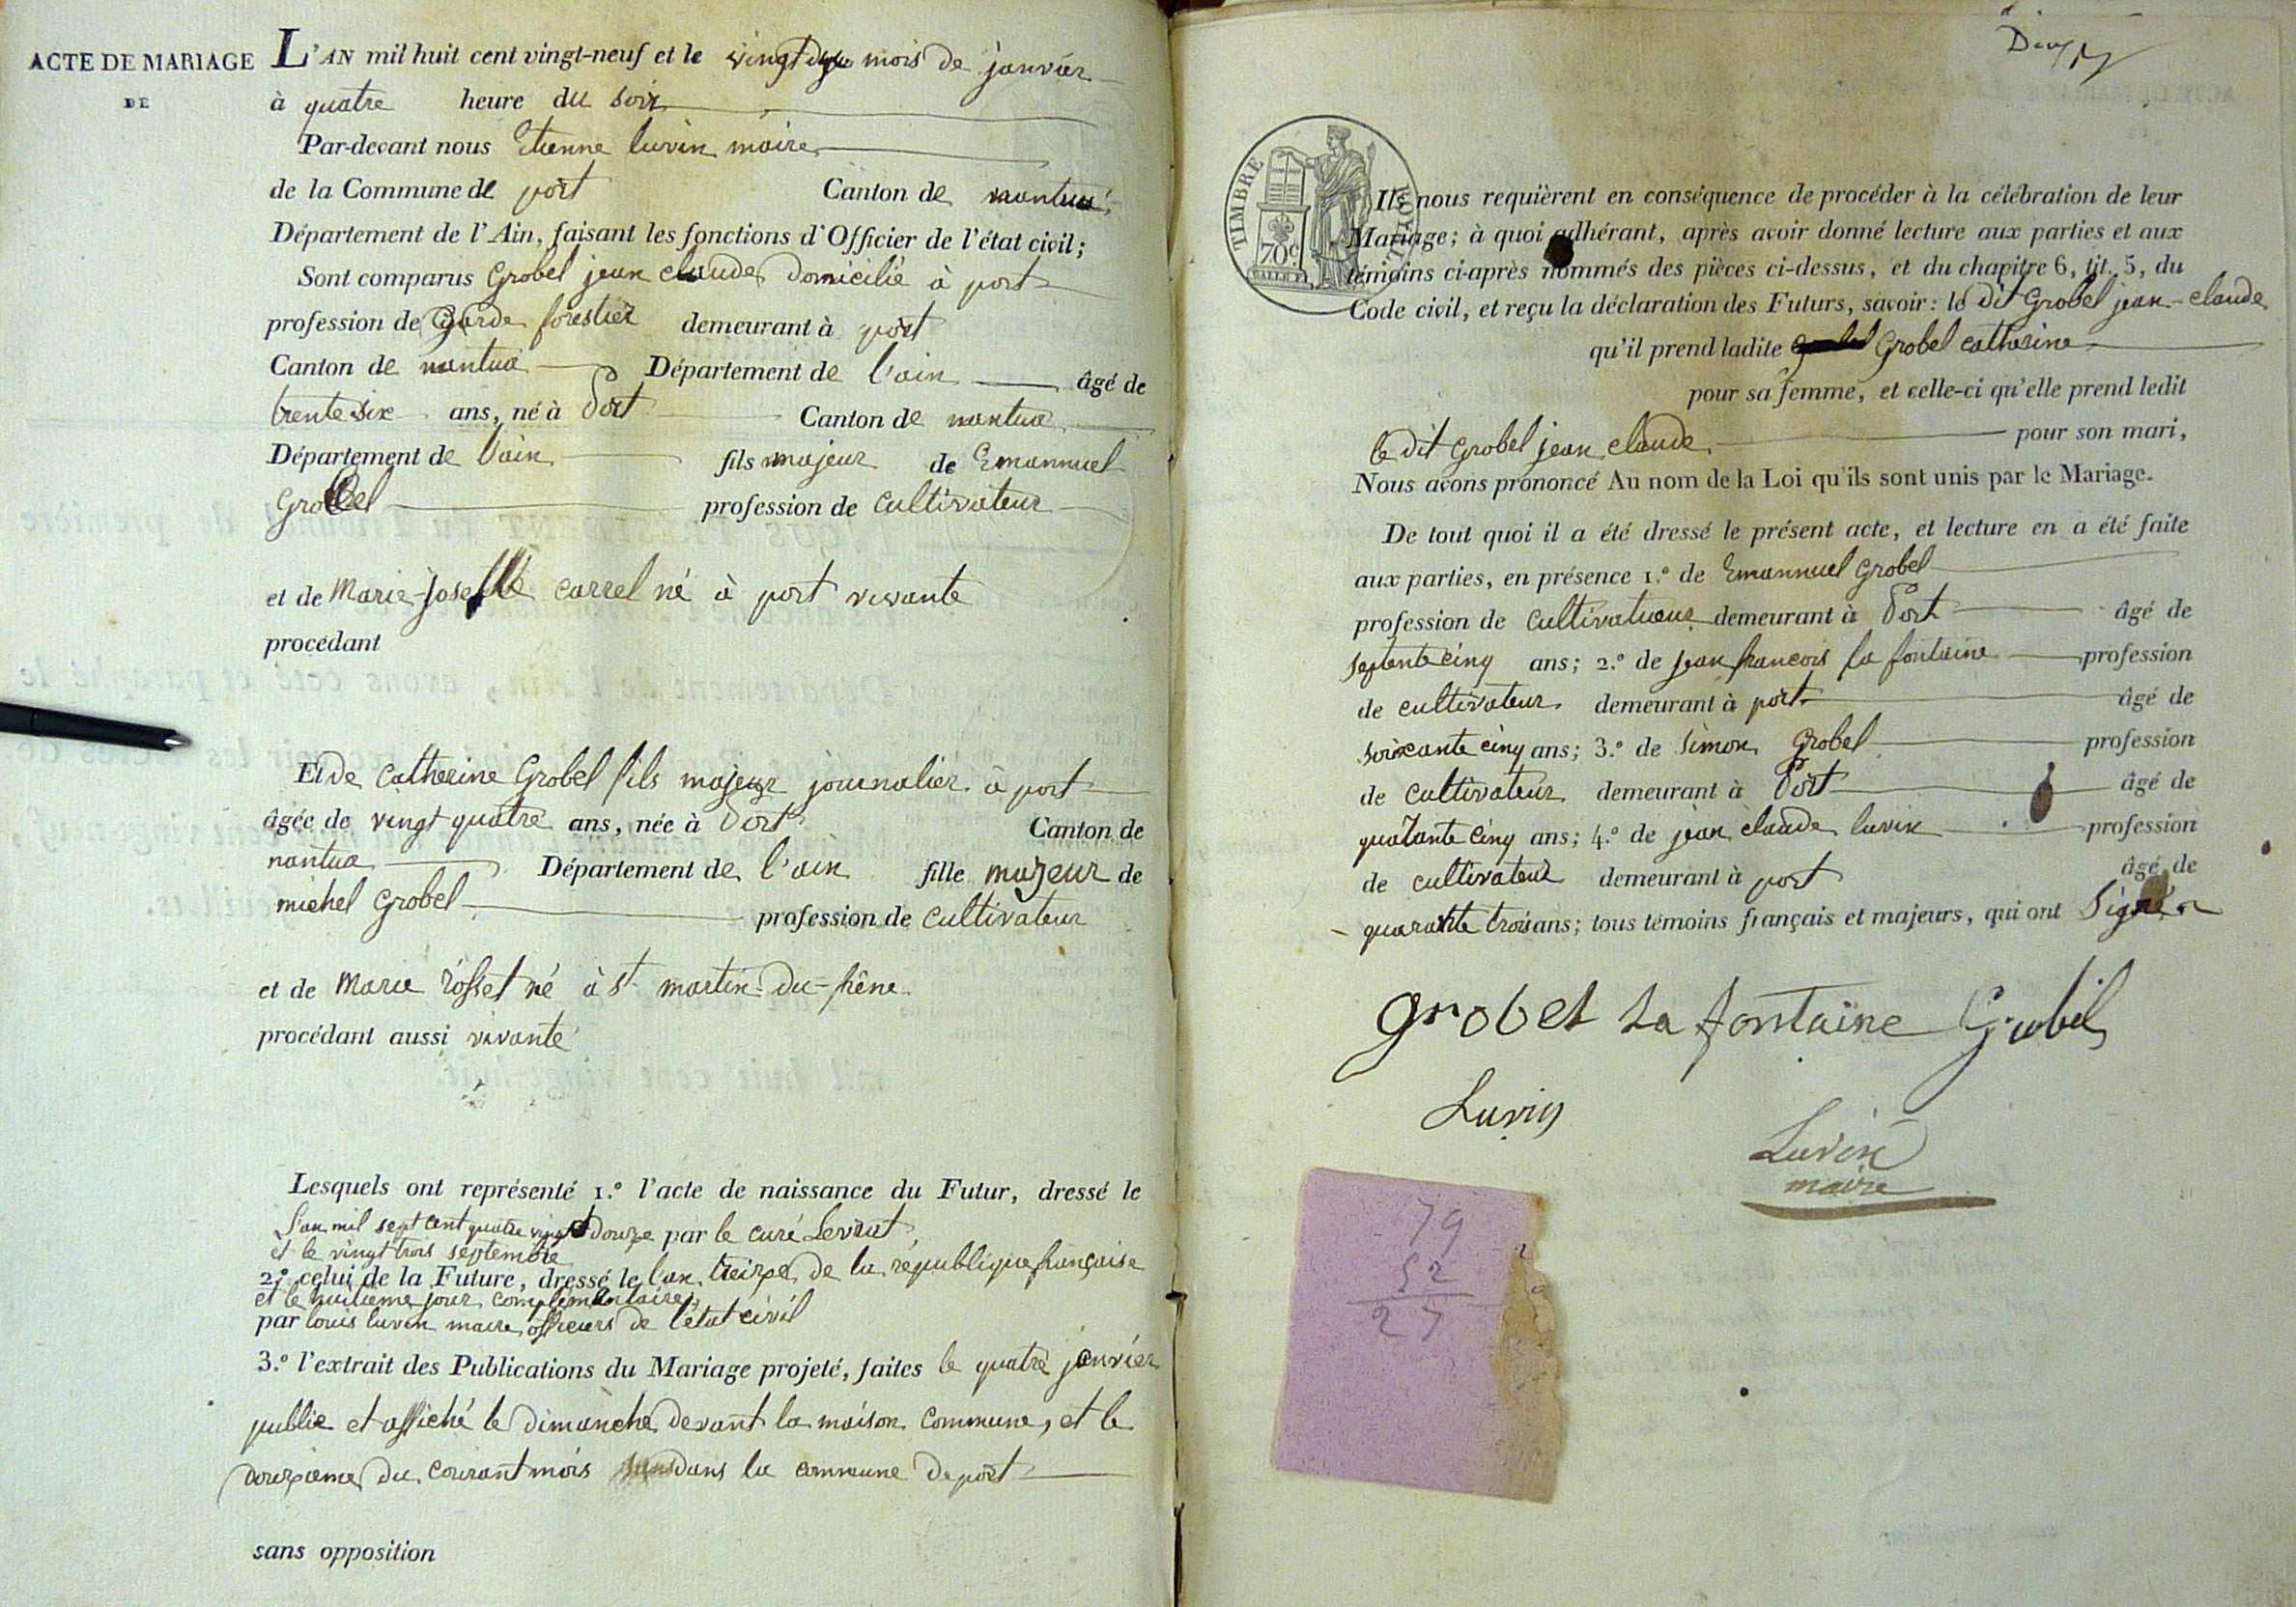 ACTE DE MARIAGE
DE
L'AN mil huit cent vingt-neuf et le vingt mois de janvier
à quatre heure du soir
Par-devant nous Etienne luvin maire
de la Commune de port Canton de nantua
Département de l'Ain, faisant les fonctions d'Officier de l'état civil;
Sont comparus Grobel jean claude domicilié à port
profession de Garde forestier demeurant à port
Canton de nantua Département de l'ain âgé de
trente six ans, né à Port Canton de nantua
Département de l'ain fils majeur de Emannuel
Grobel profession de cultivateur
et de Marie-Josephte carrel né à port vivante
procédant
Et de Catherine Grobel fils majeur journalier à port
âgée de vingt quatre ans, née à Port Canton de
nantua Département de l'ain fille majeur de
michel Grobel profession de cultivateur
et de Marie rosset né à st martin-du-frêne
procédant aussi vivante
Lesquels ont représenté 1.º l'acte de naissance du Futur, dressé le
L'an mil sept cent quatre vingt douze par le curé Levrat
et le vingt trois septembre
2.º celui de la Future, dressé le l'an treize de la république française
et le huitieme jour complémentaire
par louis luvin maire officiers de l'état civil
3.º l'extrait des Publications du Mariage projeté, faites le quatre janvier
publié et affiché le Dimanche devant la maison commune, et le
douzieme du courant mois dans la commune de port
sans opposition
TIMBRE ROYAL
70c
Ils nous requièrent en conséquence de procéder à la célébration de leur
Mariage; à quoi adhérant, après avoir donné lecture aux parties et aux
témoins ci-après nommés des pièces ci-dessus, et du chapitre 6, tit. 5, du
Code civil, et reçu la déclaration des Futurs, savoir: le dit Grobel jean-claude
qu'il prend ladite Grobel catherine
pour sa femme, et celle-ci qu'elle prend ledit
le dit Grobel jean claude pour son mari,
Nous avons prononcé Au nom de la Loi qu'ils sont unis par le Mariage.
De tout quoi il a été dressé le présent acte, et lecture en a été faite
aux parties, en présence 1.º de Emannuel Grobel
profession de cultivatueur demeurant à Port âgé de
septente cinq ans; 2.º de Jean francois la fontaine profession
de cultivateur demeurant à port âgé de
soixante cinq ans; 3.º de Simon Grobel profession
de cultivateur demeurant à Port âgé de
quarante cinq ans; 4.º de jean claude luvin profession
de cultivateur demeurant à port âgé de
quarante trois ans; tous témoins français et majeurs, qui ont Signé
grobel La fontaine Grobel
Luvin
Luvin
maire
79
52
27